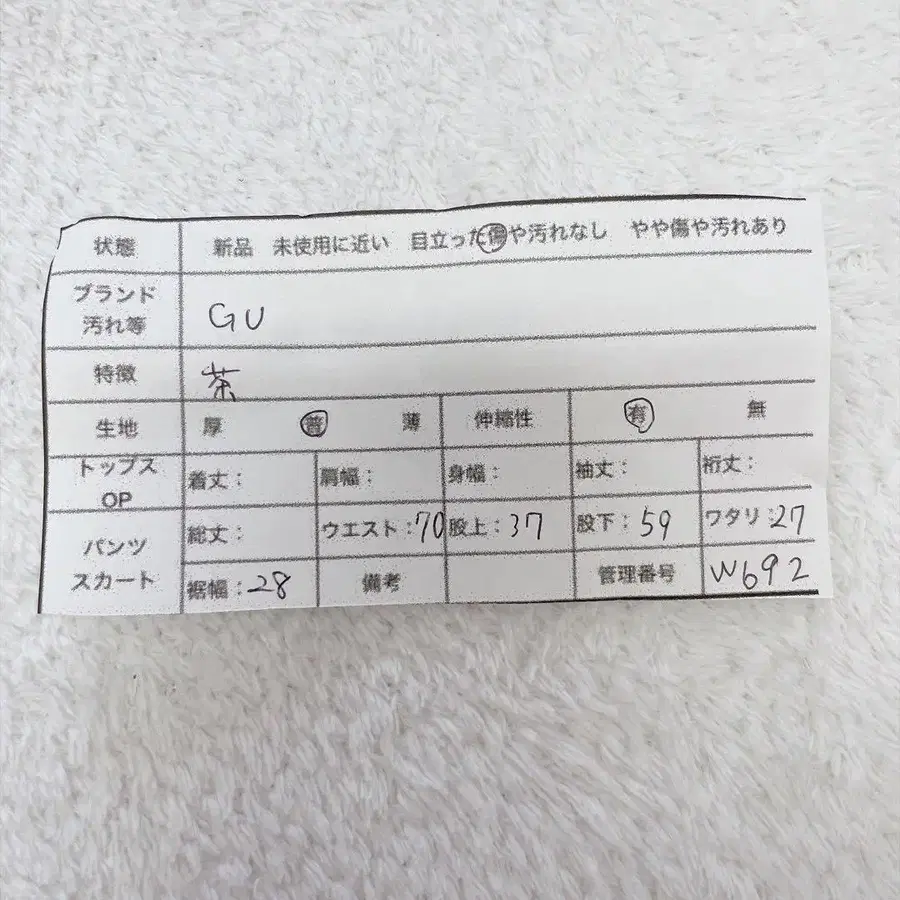 状態 新品 未使用に近い 目立った傷や汚れなし やや傷や汚れあり
ブランド
汚れ等 GU
特徴 茶
生地 厚 普 薄 伸縮性 有 無
トップス
OP 着丈: 肩幅: 身幅: 袖丈: 裄丈:
パンツ
スカート 総丈: ウエスト:70 股上:37 股下:59 ワタリ:27
裾幅:28 備考 管理番号 W692